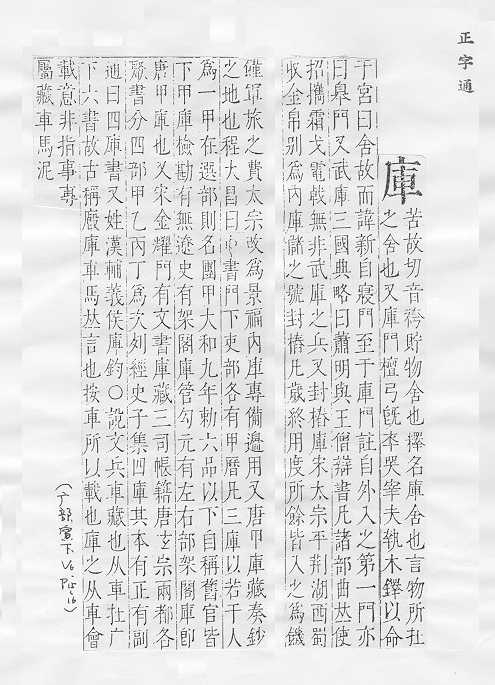 正字通
庫
苦故切音袴貯物舍也擇名庫舍也言物所在
之舍也又庫門檀弓旣卒哭宰夫執木鐸以命
于宮曰舍故而諱新自寢門至于庫門註自外入之第一門亦
曰皋門又武庫三國典略曰蕭明與王僧辯書凡諸部曲𠀤使
招攜霜戈電戟無非武庫之兵又封樁庫宋太宗平荆湖西蜀
收金帛別爲內庫儲之號封樁凡歲終用度所餘皆入之爲饑
饉軍旅之費太宗改爲景福內庫專備邊用又唐甲庫藏奏鈔
之地也程大昌曰中書門下吏部各有甲曆凡三庫以若干人
爲一甲在選部則名團甲大和九年勅六品以下自稱舊官皆
下甲庫檢勘有無遼史有架閣庫管勾元有左右部架閣庫卽
唐甲庫也又宋金耀門有文書庫藏三司帳籍唐玄宗兩都各
聚書分四部甲乙丙丁爲次列經史子集四庫其本有正有副
通曰四庫書又姓漢輔義侯庫鈞○說文兵車藏也从車在广
下六書故古稱廄庫車馬𠀤言也按車所以載也庫之从車會
載意非指事專
屬藏車馬泥